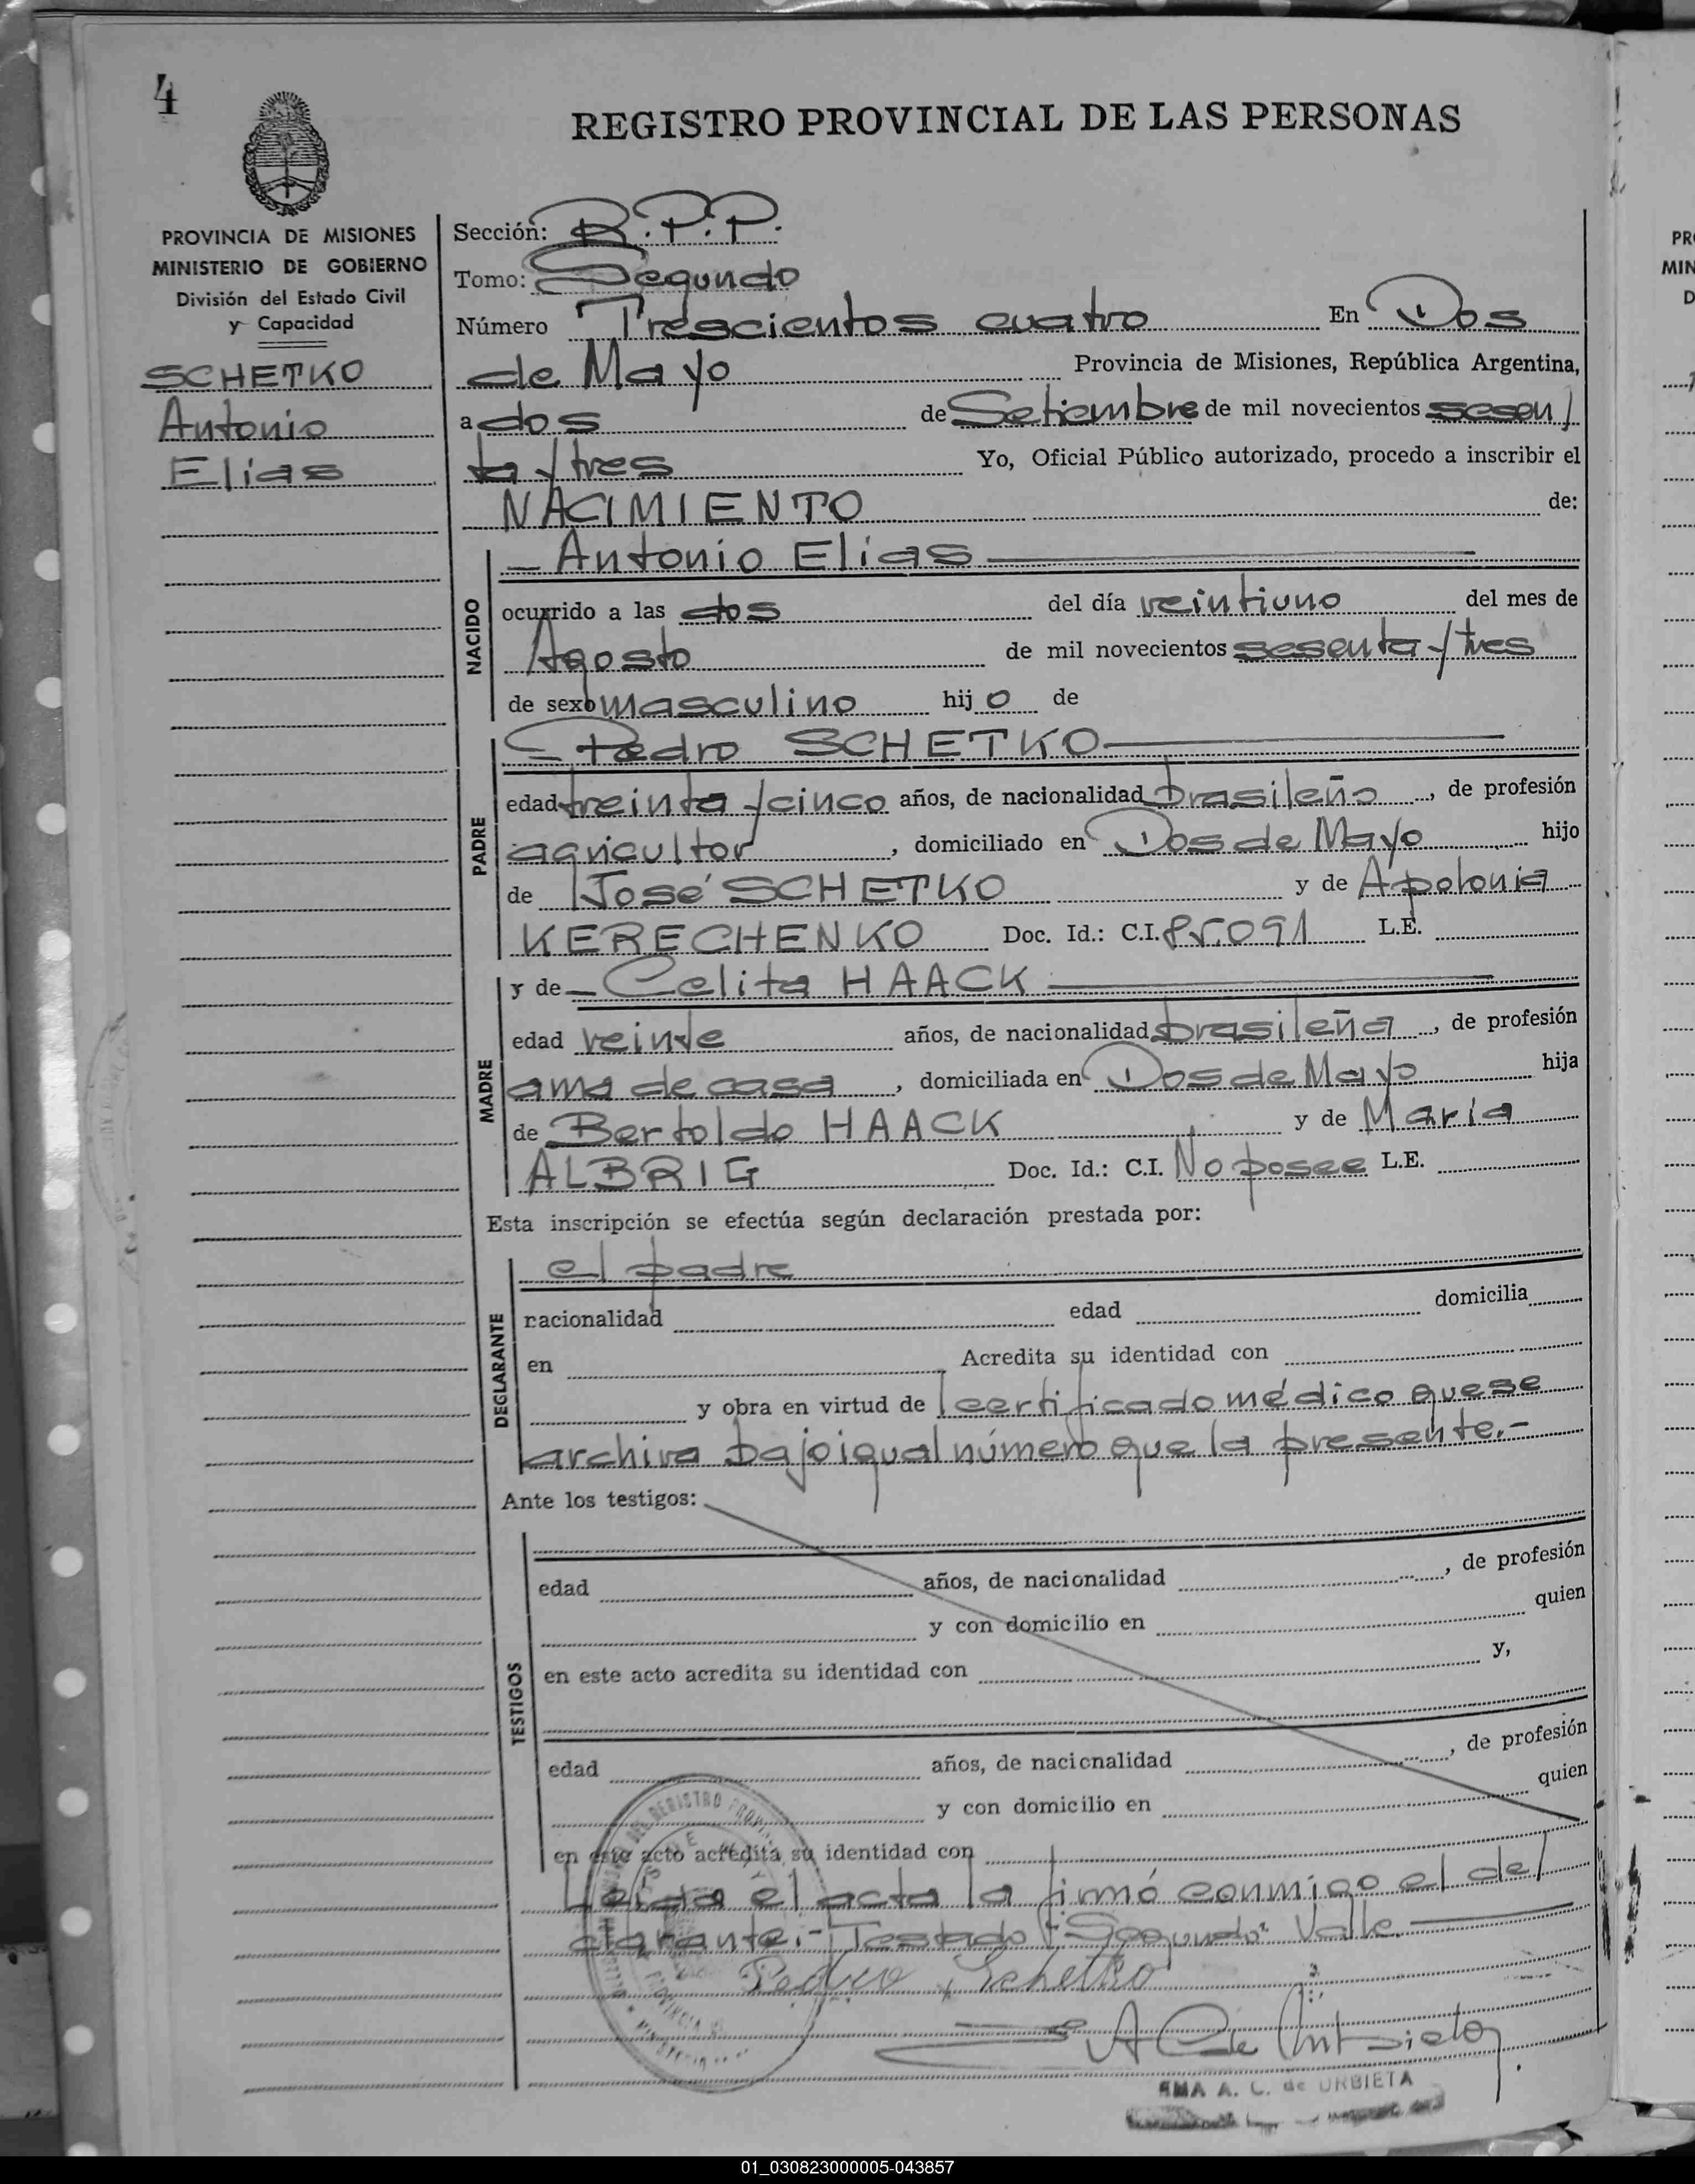 4
REGISTRO PROVINCIAL DE LAS PERSONAS
PROVINCIA DE MISIONES
MINISTERIO DE GOBIERNO
División del Estado Civil
y Capacidad
SCHETKO
Antonio
Elias
Sección: R.P.P.
Tomo: Segundo
Número Trescientos cuatro En Dos
de Mayo Provincia de Misiones, República Argentina,
a dos de Setiembre de mil novecientos sesen/
ta y tres Yo, Oficial Público autorizado, procedo a inscribir el
NACIMIENTO de:
NACIDO
— Antonio Elias —
ocurrido a las dos del día veintiuno del mes de
Agosto de mil novecientos sesenta y tres
de sexo masculino hijo de
PADRE
— Pedro SCHETKO —
edad treinta y cinco años, de nacionalidad brasileño, de profesión
agricultor, domiciliado en Dos de Mayo hijo
de José SCHETKO y de Apolonia
KERECHENKO Doc. Id.: C.I. 85.091 L.E.
MADRE
y de — Celita HAACK —
edad veinte años, de nacionalidad brasileña, de profesión
ama de casa, domiciliada en Dos de Mayo hija
de Bertoldo HAACK y de María
ALBRIG Doc. Id.: C.I. No posee L.E.
Esta inscripción se efectúa según declaración prestada por:
DECLARANTE
el padre
nacionalidad edad domicilia
en Acredita su identidad con
y obra en virtud de l certificado médico que se
archiva bajo igual número que la presente.-
Ante los testigos:
TESTIGOS
edad años, de nacionalidad , de profesión
y con domicilio en quien
en este acto acredita su identidad con y,
edad años, de nacionalidad , de profesión
y con domicilio en quien
en este acto acredita su identidad con
Leida el acta la firmó conmigo el de/
clarante.- Testado: "Segundo" Valle. —
Pedro Schetko
A C de Urbieta
EMA A. C. de URBIETA
PR
MIN
D
01_030823000005-043857